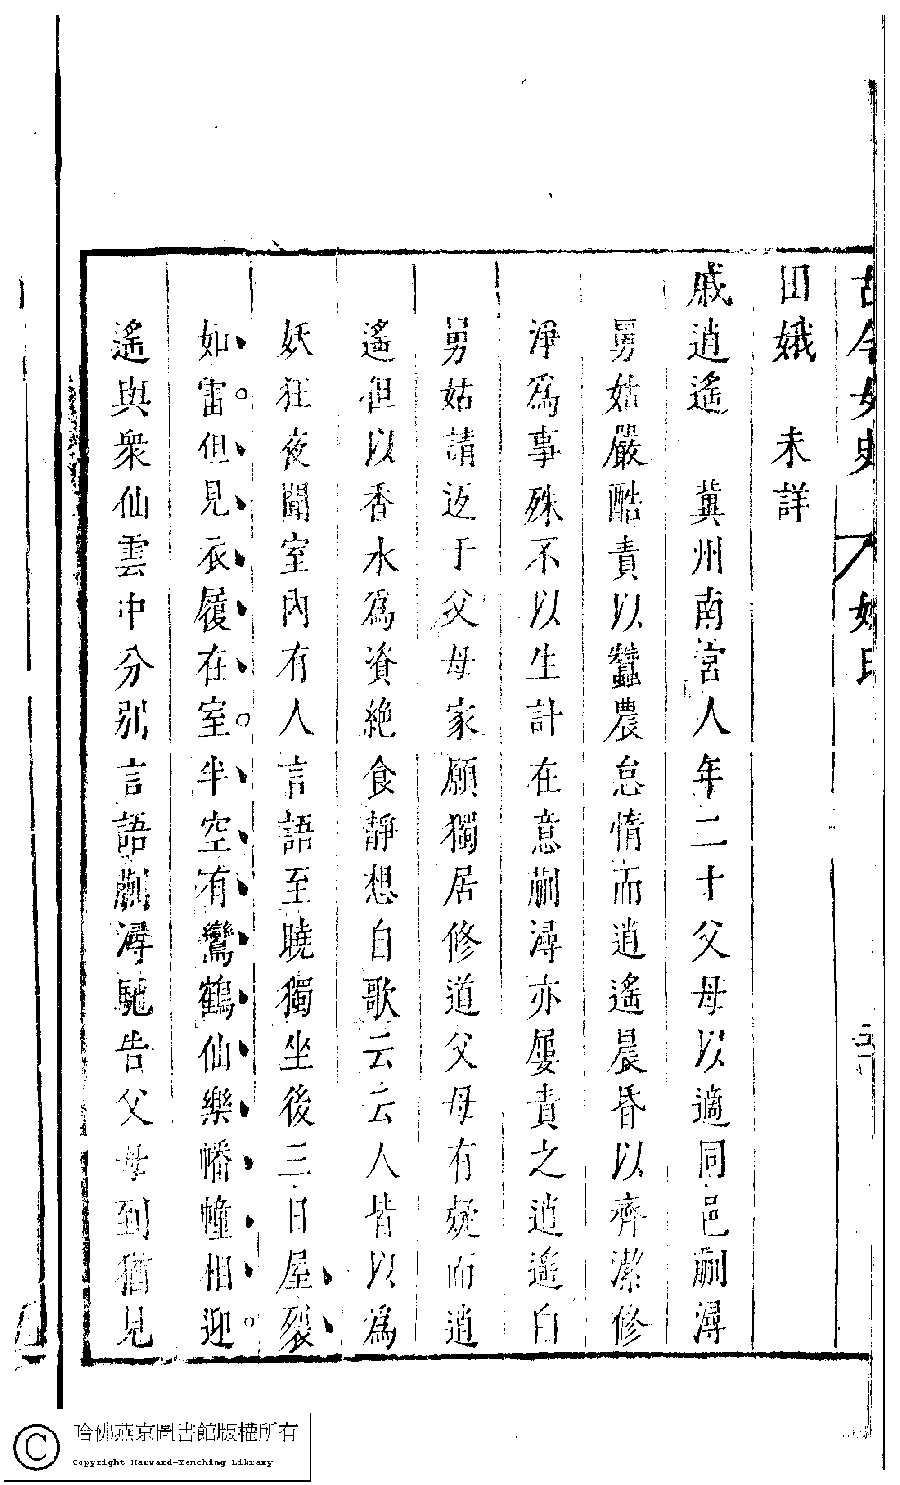 古今女史 姓氏
田娥 未詳
戚逍遙 冀州南宮人年二十父母以適同邑蒯潯
舅姑嚴酷責以蠶農怠惰而逍遙晨昏以齊潔修
淨為事殊不以生計在意蒯潯亦屢責之逍遙白
舅姑請返于父母家願獨居修道父母有疑而逍
遙但以香水為資絶食靜想自歌云云人皆以為
妖狂夜聞室內有人言語至曉獨坐後三日屋裂
如雷但見衣履在室半空有鸞鶴仙樂幡幢相迎
遙與衆仙雲中分別言語蒯潯馳告父母到猶見
哈佛燕京圖書館版權所有
Copyright Harvard-Yenching Library